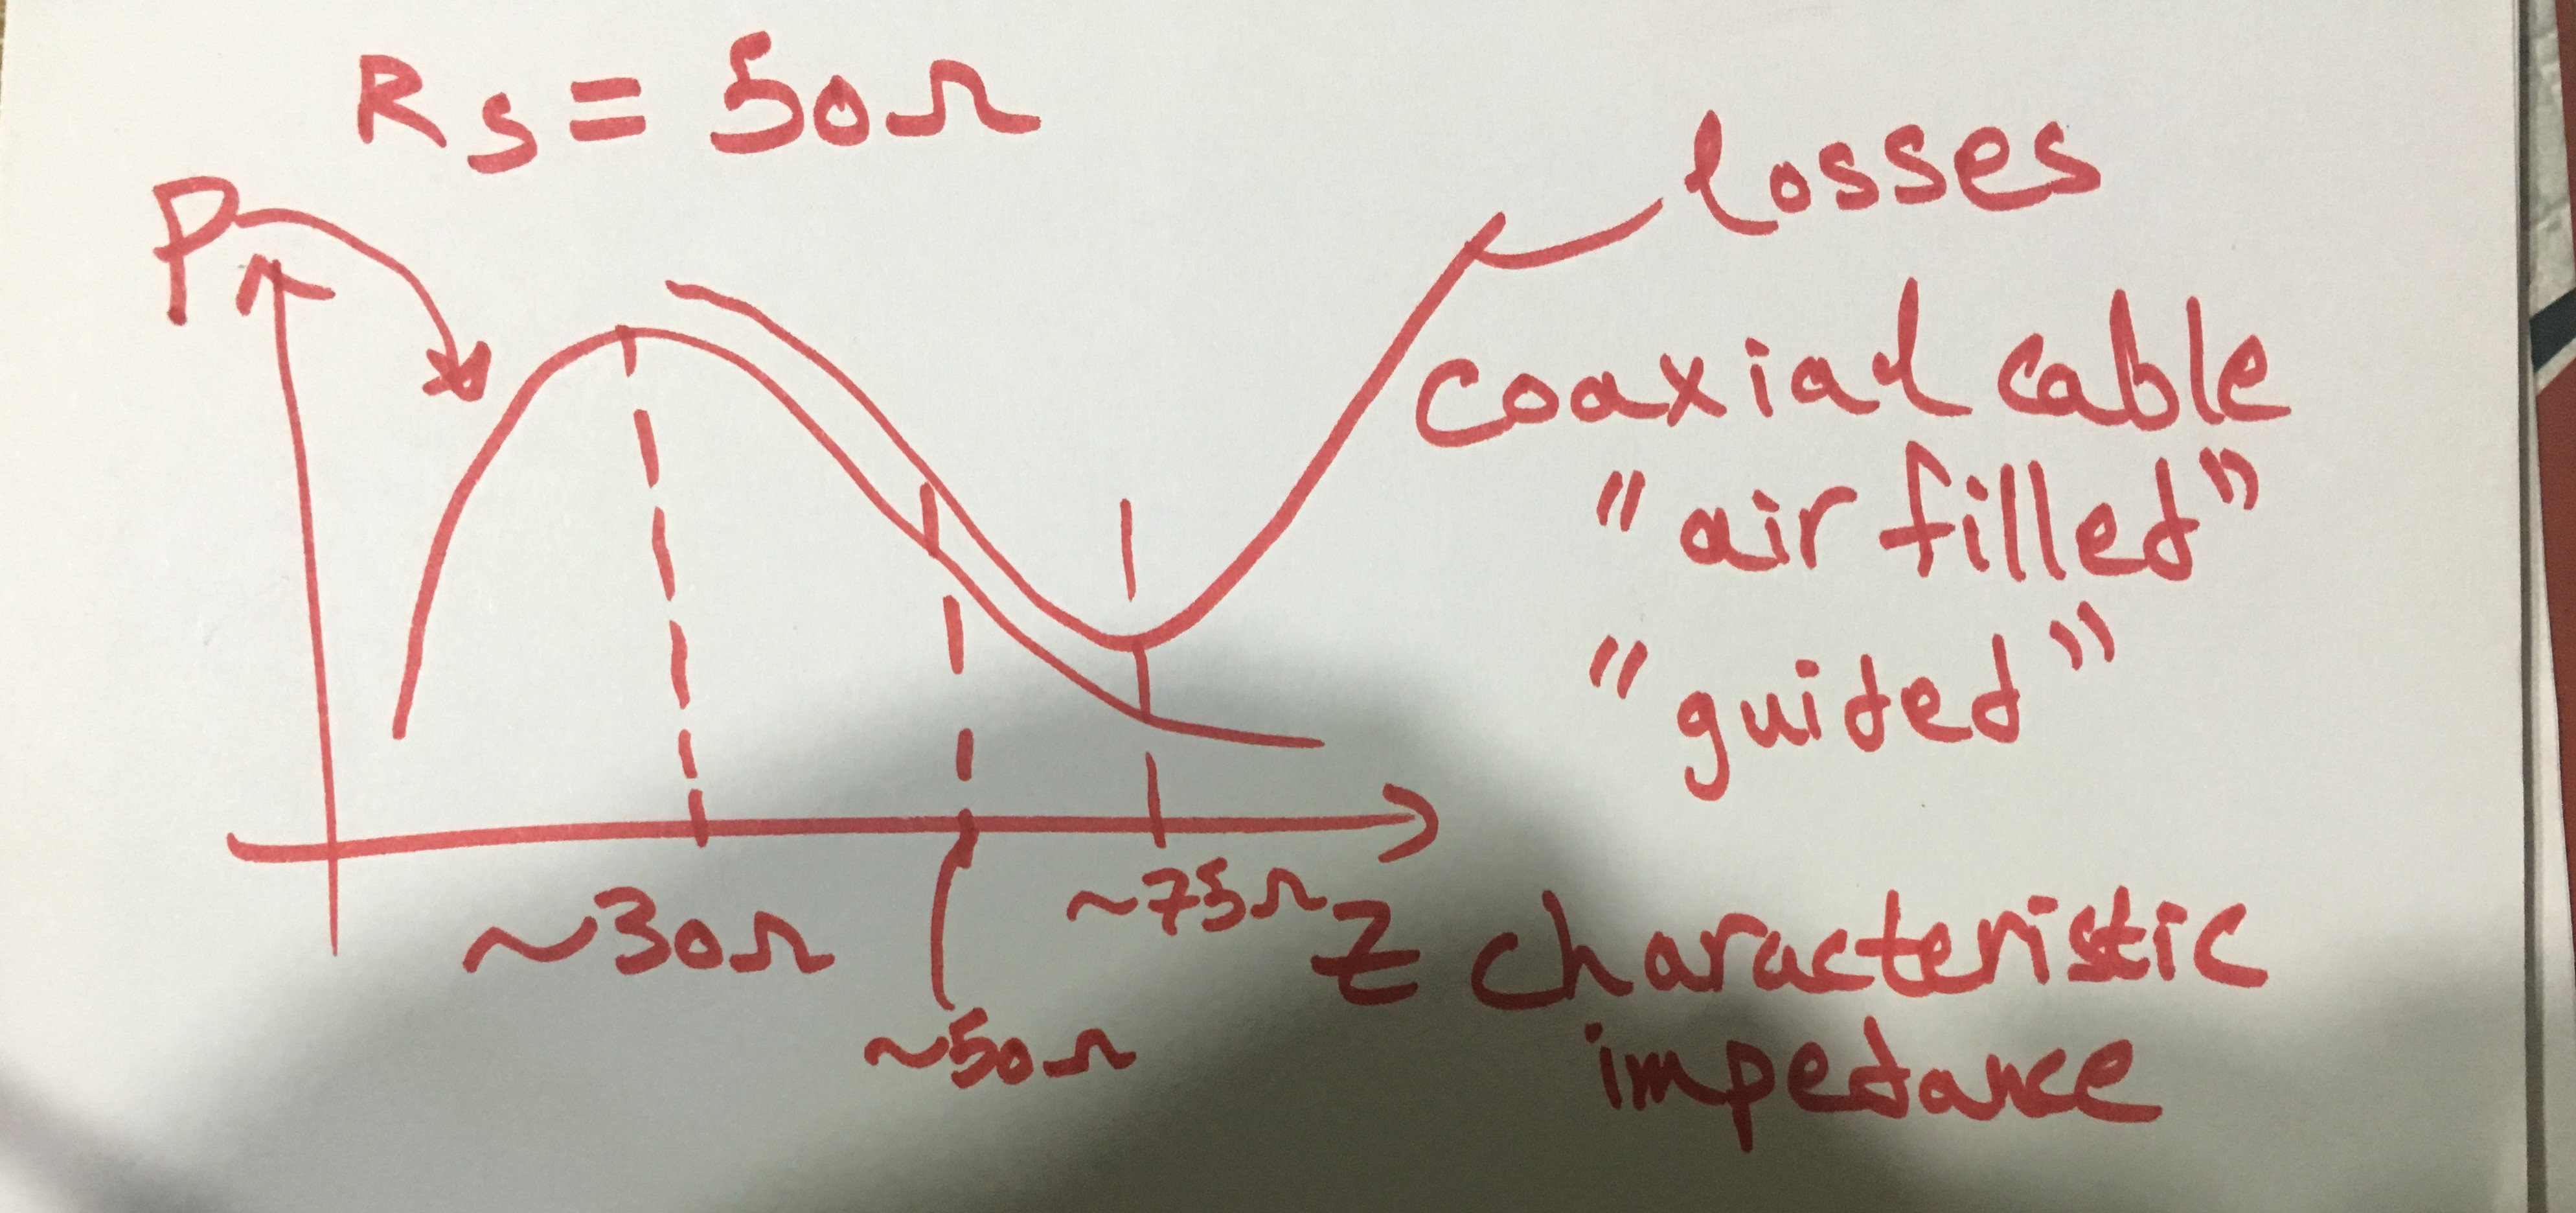 Rs = 50Ω
P
losses
coaxial cable
"air filled"
"guided"
~30Ω
~50Ω
~75Ω
Z characteristic
impedance